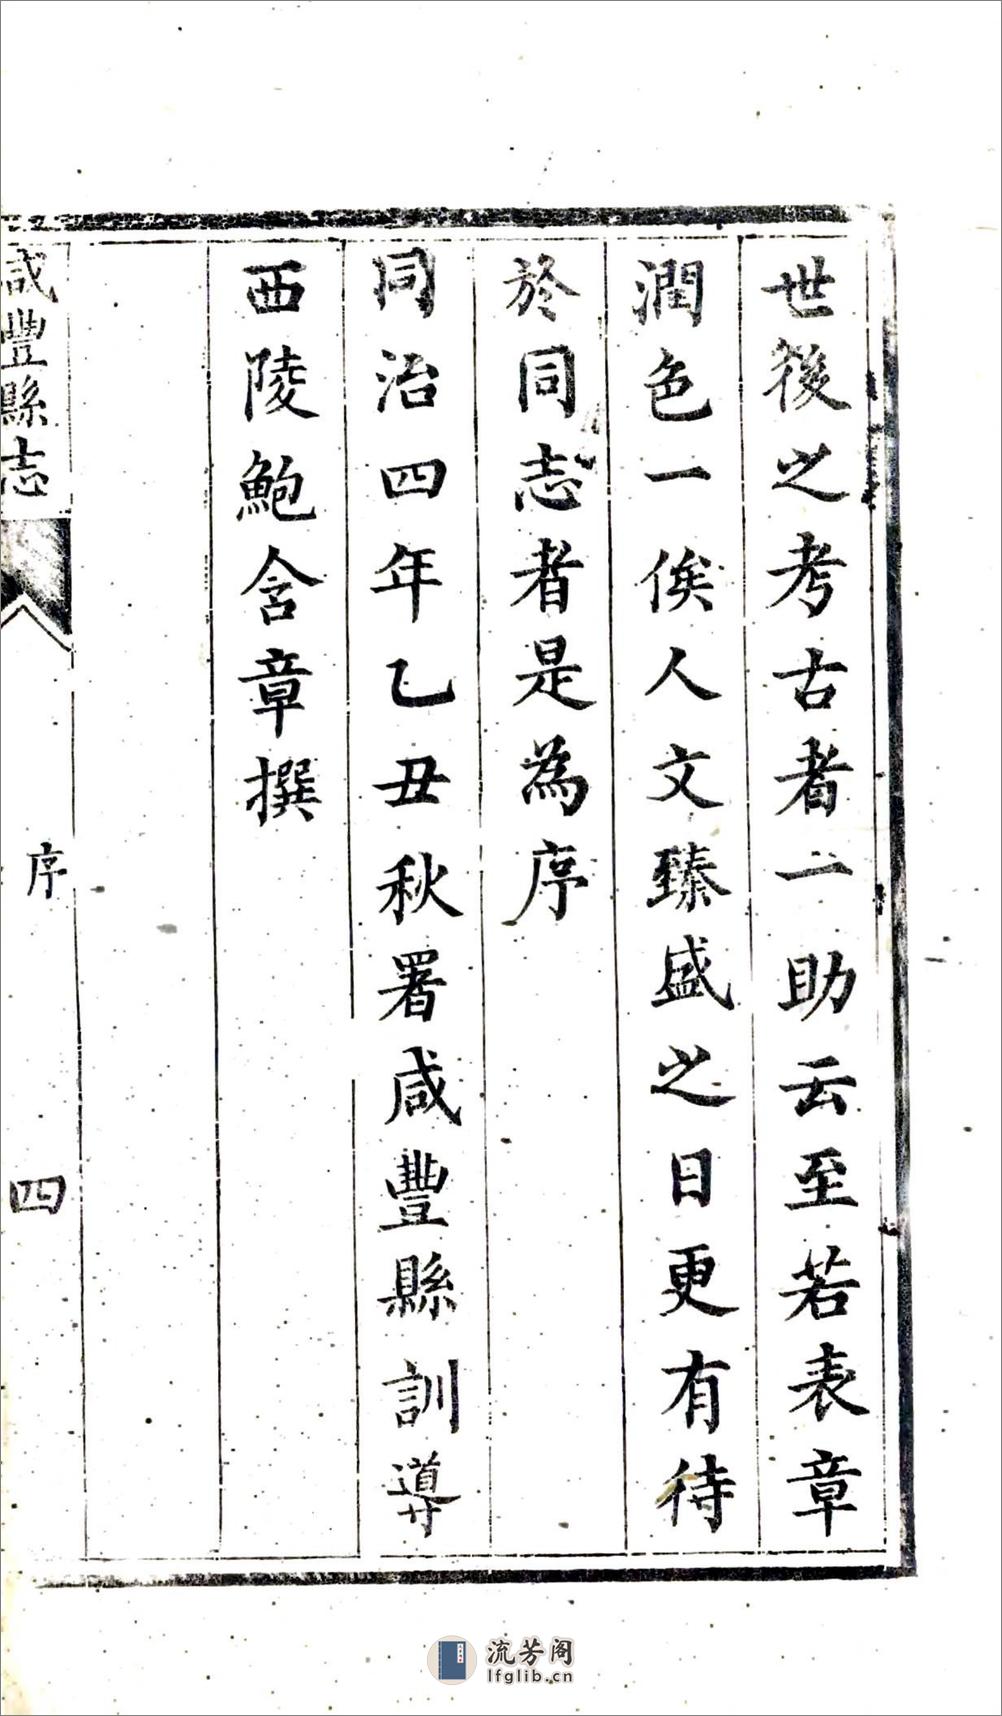 世後之考古者一助云至若表章
潤色一俟人文臻盛之日更有待
於同志者是為序
同治四年乙丑秋署咸豐縣訓導
西陵鮑含章撰
咸豐縣志
序
四
流芳阁
lfglib.cn